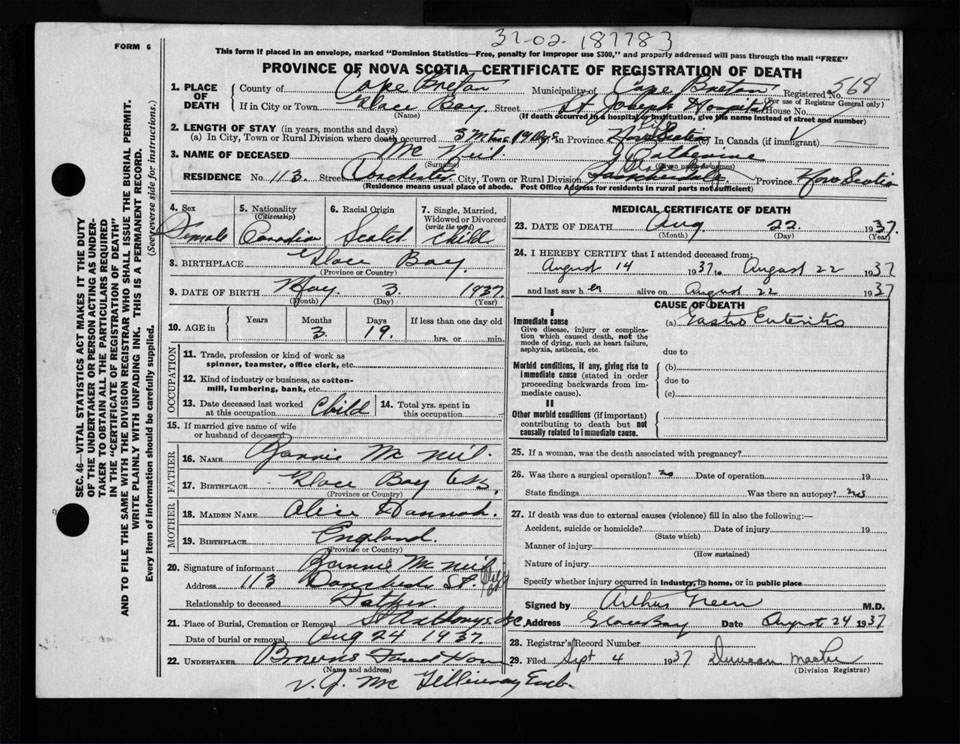 37-02-187783
FORM 6
This form if placed in an envelope, marked "Dominion Statistics—Free, penalty for improper use $300," and properly addressed will pass through the mail "FREE"
PROVINCE OF NOVA SCOTIA—CERTIFICATE OF REGISTRATION OF DEATH
SEC. 46—VITAL STATISTICS ACT MAKES IT THE DUTY
OF THE UNDERTAKER OR PERSON ACTING AS UNDER-
TAKER TO OBTAIN ALL THE PARTICULARS REQUIRED
IN THE "CERTIFICATE OF REGISTRATION OF DEATH"
AND TO FILE THE SAME WITH THE DIVISION REGISTRAR WHO SHALL ISSUE THE BURIAL PERMIT.
WRITE PLAINLY WITH UNFADING INK. THIS IS A PERMANENT RECORD.
Every item of information should be carefully supplied. (See reverse side for instructions.)
1. PLACE OF DEATH
County of Cape Breton Municipality of Cape Breton Registered No. 568
(For use of Registrar General only)
If in City or Town Glace Bay Street St Joseph Hospital House No.
(Name) (If death occurred in a hospital or institution, give the name instead of street and number)
2. LENGTH OF STAY (in years, months and days)
(a) In City, Town or Rural Division where death occurred 3 Mths 19 Dys in Province Life Nova Scotia (c) In Canada (if immigrant)
3. NAME OF DECEASED Mc Neil Catherine
(Surname)
RESIDENCE No. 113 Street City, Town or Rural Division Province Nova Scotia
(Residence means usual place of abode. Post Office Address for residents in rural parts not sufficient)
4. Sex Female
5. Nationality (Citizenship) Canadian
6. Racial Origin Scotch
7. Single, Married, Widowed or Divorced (write the word) Child
8. BIRTHPLACE Glace Bay
(Province or Country)
9. DATE OF BIRTH May 3 1937
(Month) (Day) (Year)
10. AGE in Years Months 3 Days 19 If less than one day old hrs. or min.
OCCUPATION
11. Trade, profession or kind of work as spinner, teamster, office clerk, etc.
12. Kind of industry or business, as cotton-mill, lumbering, bank, etc.
13. Date deceased last worked at this occupation Child 14. Total yrs. spent in this occupation
15. If married give name of wife or husband of deceased
FATHER
16. NAME Mc Neil
17. BIRTHPLACE Glace Bay C.B.
(Province or Country)
MOTHER
18. MAIDEN NAME Alice Hannah
19. BIRTHPLACE England
(Province or Country)
20. Signature of informant Mc Neil
Address 113 St.
Relationship to deceased Father
21. Place of Burial, Cremation or Removal St Anthonys
Date of burial or removal Aug 24 1937
22. UNDERTAKER
(Name and address)
V. J. Mc Gillivray Emb.
MEDICAL CERTIFICATE OF DEATH
23. DATE OF DEATH Aug 22 1937
(Month) (Day) (Year)
24. I HEREBY CERTIFY that I attended deceased from:
August 14 1937 to August 22 1937
and last saw her alive on August 22 1937
CAUSE OF DEATH
I
Immediate cause (a) Gastro Enteritis
Give disease, injury or complication which caused death, not the mode of dying, such as heart failure, asphyxia, asthenia, etc.
due to
Morbid conditions, if any, giving rise to immediate cause (stated in order proceeding backwards from immediate cause). (b)
due to
(c)
II
Other morbid conditions (if important) contributing to death but not causally related to immediate cause.
25. If a woman, was the death associated with pregnancy?
26. Was there a surgical operation? no Date of operation 19
State findings Was there an autopsy? no
27. If death was due to external causes (violence) fill in also the following:—
Accident, suicide or homicide? Date of injury 19
(State which)
Manner of injury
(How sustained)
Nature of injury
Specify whether injury occurred in industry, in home, or in public place
Signed by Arthur Green M.D.
Address Glace Bay Date August 24 1937
28. Registrar's Record Number
29. Filed Sept 4 1937 Duncan
(Division Registrar)